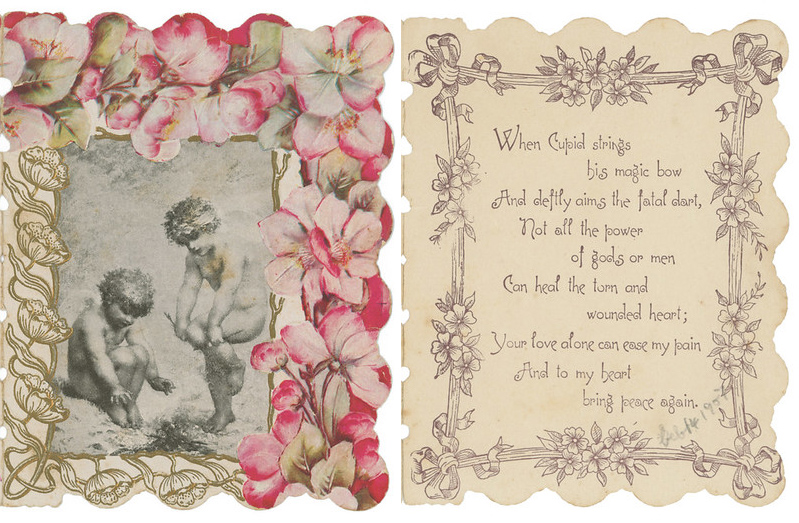 When Cupid strings
his magic bow
And deftly aims the fatal dart,
Not all the power
of gods or men
Can heal the torn and
wounded heart;
Your love alone can ease my pain
And to my heart
bring peace again.